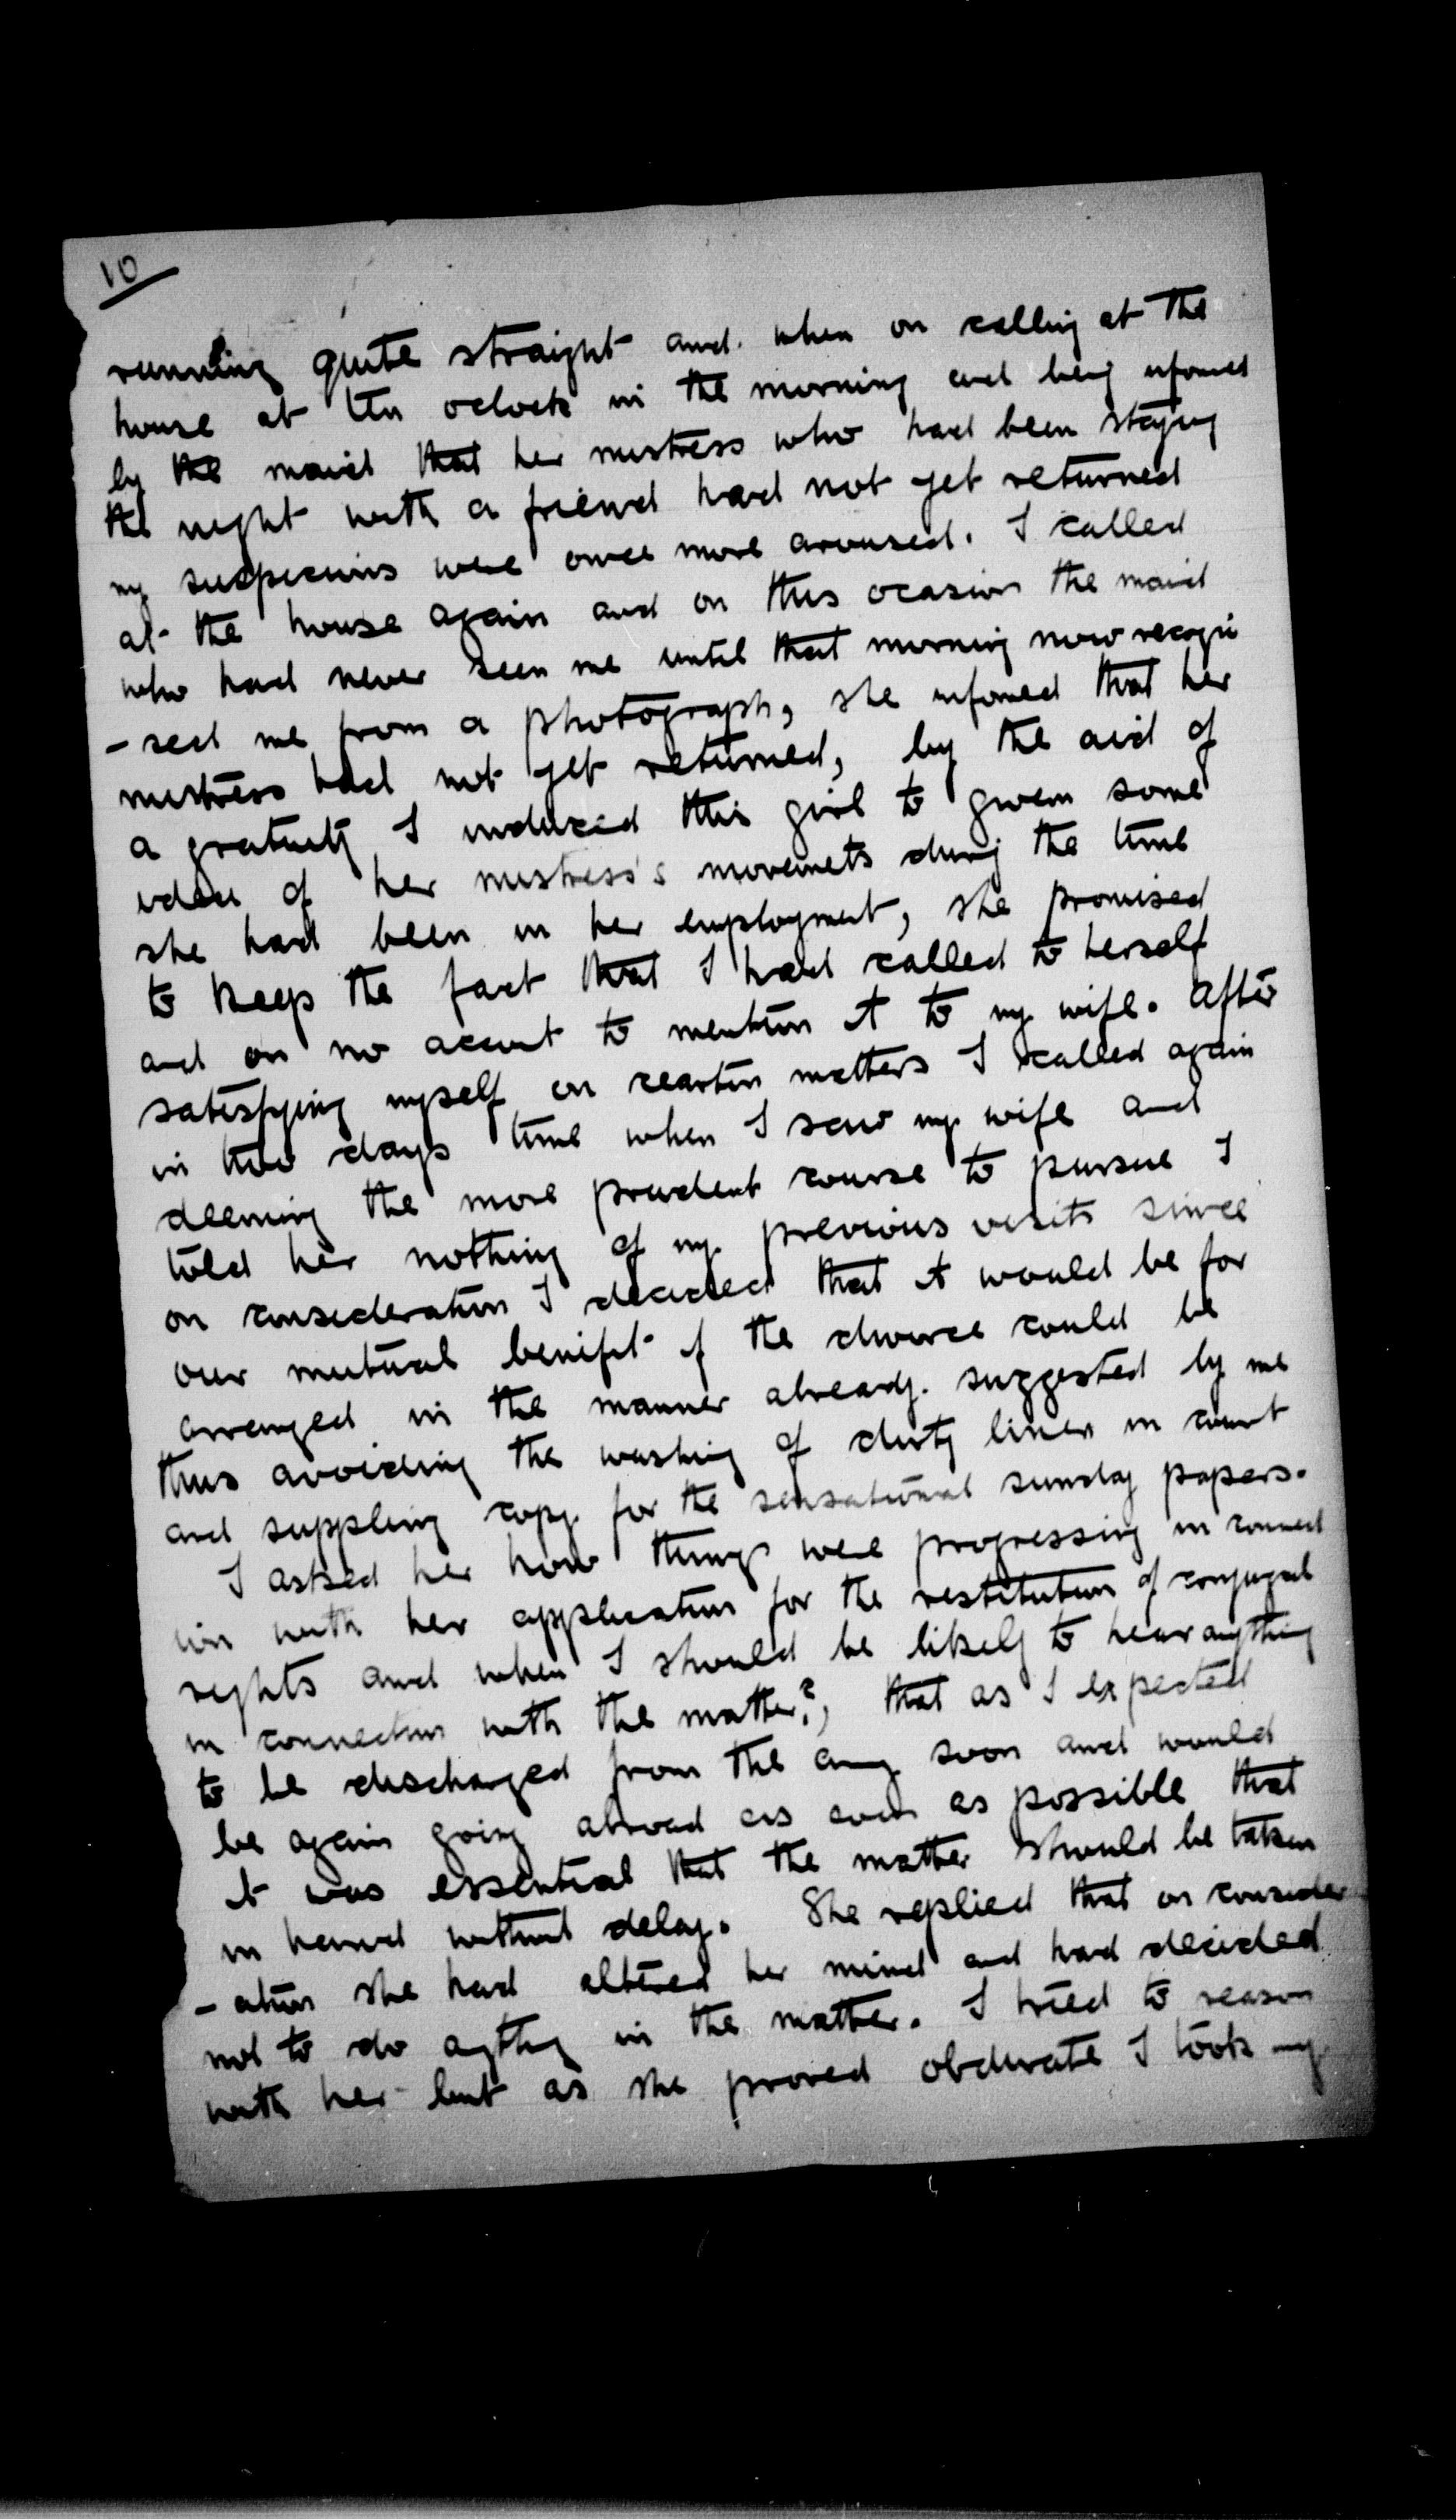 10
running quite straight and when on calling at the
house at ten oclock in the morning and being infomed
by the maid that her mistress who had been staying
the night with a friend had not yet returned
my suspicions were once more aroused. I called
at the house again and on this ocasion the maid
who had never seen me until that morning now recogni
- sed me from a photograph, she infomed that her
mistress had not yet returned, by the aid of
a gratuity I induced this girl to givem some
idea of her mistress's movemets during the time
she had been in her employment, she promised
to keep the fact that I had called to herself
and on no account to mention it to my wife. After
satisfying myself on ceartin matters I called again
in two days time when I saw my wife and
deeming the more prudent course to pursue I
told her nothing of my previous visits since
on consideration I decided that it would be for
our mutual benifit if the divorce could be
arranged in the manner already suggested by me
thus avoiding the washing of dirty linen in court
and suppling copy for the sensational sunday papers.
I asked her how things were progressing in connect
ion with her application for the restitution of conjugal
rights and when I should be likely to hear anything
in connection with the matter?, that as I expected
to be discharged from the army soon and would
be again going abroad as soon as possible that
it was essential that the matter should be taken
in hand without delay. She replied that on consider
- ation she had altered her mind and had decided
not to do anything in the matter. I tried to reason
with her but as she proved obdurate I took my